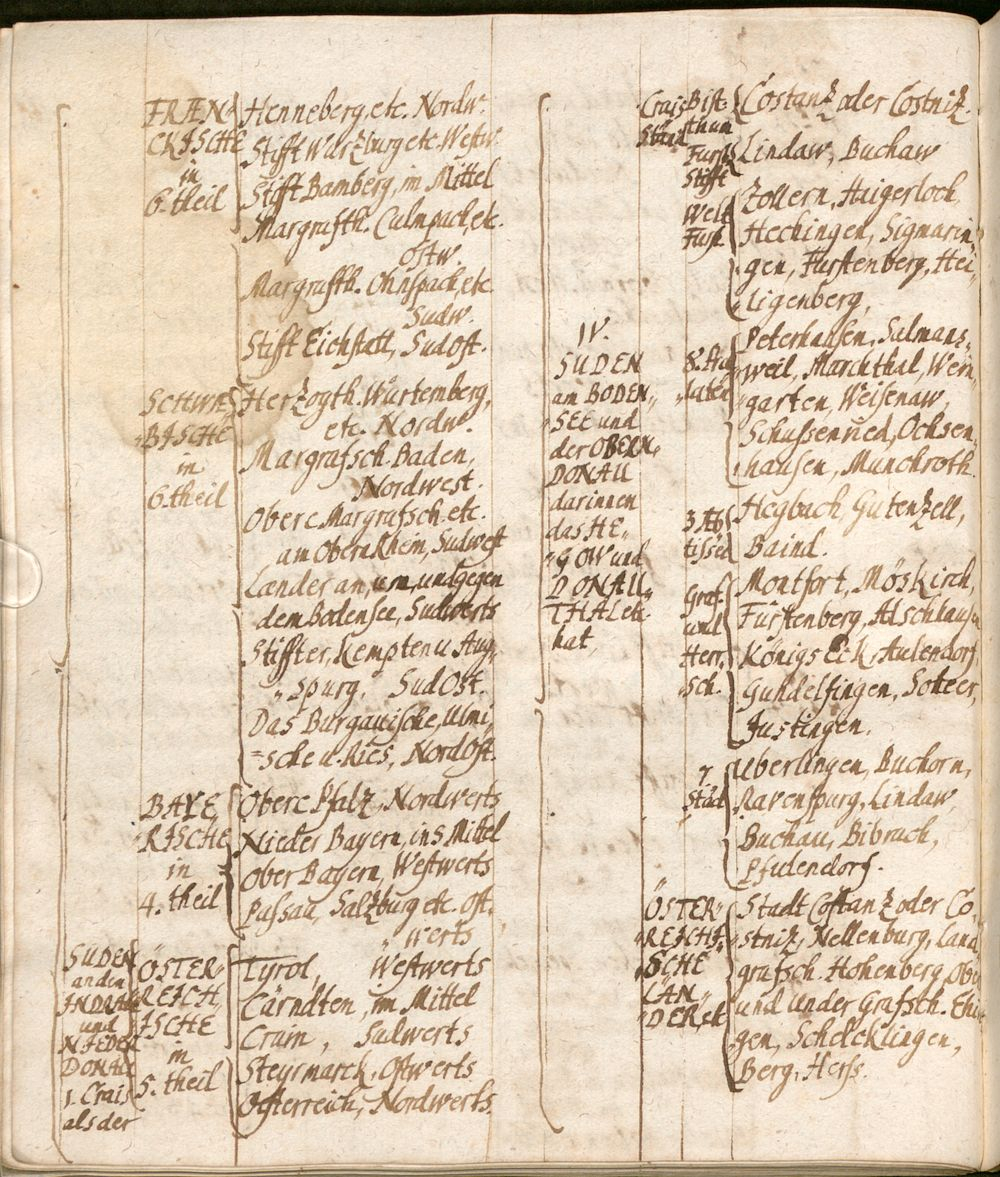 FRÆN
CKISCHE
in
6. theil
Henneberg, etc. Nordw.
Stifft Wurzburg etc. Westw.
Stifft Bamberg, im Mittel
Margrafth. Culmpach, etc.
Ostw.
Margrafth. Ohnspach, etc
Sudw.
Stifft Eichstatt, SudOst.
SCHWÆ
BISCHE
in
6. theil
Herzogth. Würtemberg,
etc. Nordw.
Margrafsch. Baden,
Nordwest.
Obere Margrafsch. etc.
am Obern Rhein, Sudwest
Lander an, um, und gegen
dem Bodensee, Sudwerts
Stiffter, Kempten u Aug„
„spurg, SudOst.
Das Burgauische, Ulmi„
=sche u. Ries, NordOst.
BAYE„
„RISCHE
in
4. theil
Obere Pfalz, Nordwerts
Nieder Bayern, ins Mittel
Ober Bayern, Westwerts
Passau, Salzburg etc. Ost„
„werts
SUDEN
an den
und
NIEDER
DONAU
1. Crais
als der
ÖSTER„
REICH„
ISCHE
in
5. theil
Tyrol, Westwerts
Cärndten, im Mittel
Crain, Sudwerts
Steyrmarck, Ostwerts
Osterreich, Nordwerts.
IV.
SUDEN
am BODEN„
„SEE und
der OBERN„
DONAU
darinnen
das HE„
„GOW und
DONAU„
THAL etc
hat,
Crais
Bist„
thum
Costanz oder Costniz.
Furst
Stifft
Lindaw, Buchaw
Welt
Furst.
Zollern, Haigerloch,
Hechingen, Sigmarin„
gen, Furstenberg, Hei„
„ligenberg,
8. Præ
„laten
Peterhausen, Salmans„
weil, Marchthal, Wein„
„garten, Weisenaw,
Schussenried, Ochsen„
hausen, Munchroth.
3 Äb
tissen
Hegbach, Gutenzell,
Baind.
Graf.
und
Herr„
sch.
Montfort, Möskirch,
Fürstenberg, Alschhausen
Königs Eck, Aulendorf,
Gundelfingen,
Justingen.
7.
Städ
Uberlingen, Buchorn,
Ravenspurg, Lindaw,
Buchau, Bibrach,
Pfulendorf.
ÖSTER„
„REICHI„
„SCHE
LÄN„
„DER etc
Stadt Costanz oder Co„
stniz, Nellenburg, Land
grafsch. Hohenberg, Ober
und under Grafsch. Ehin
gen, Schelcklingen,
Berg,